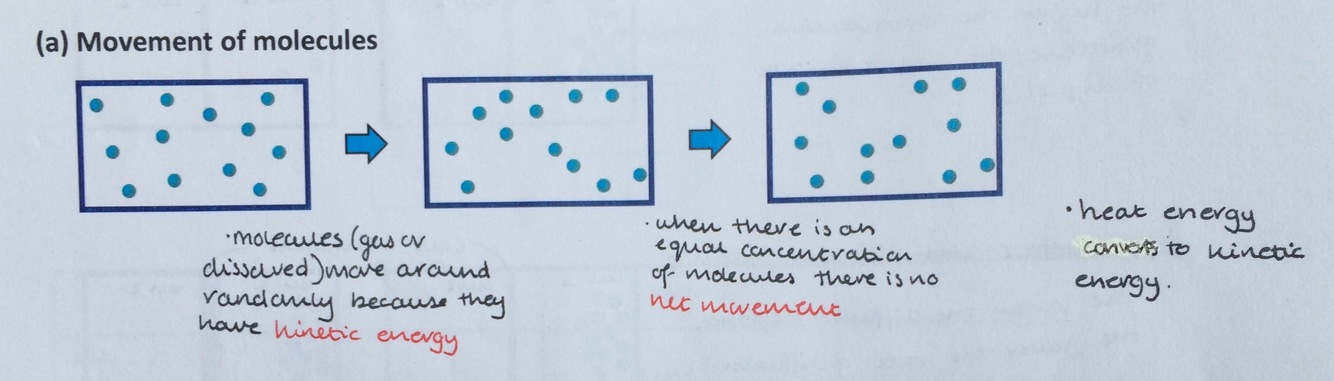 (a) Movement of molecules
·molecules (gas or
dissolved) move around
randomly because they
have kinetic energy
·when there is an
equal concentration
of molecules there is no
net movement
·heat energy
converts to kinetic
energy.